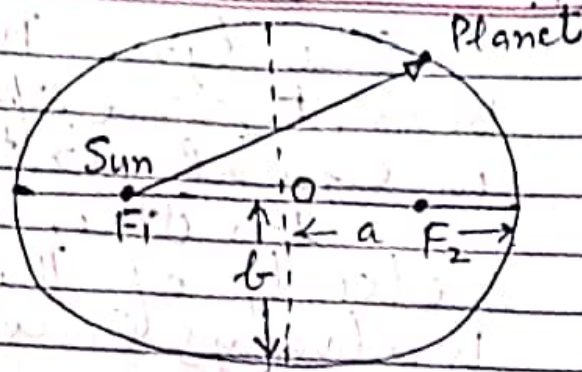 Planet
Sun
O
F1
a
F2
b